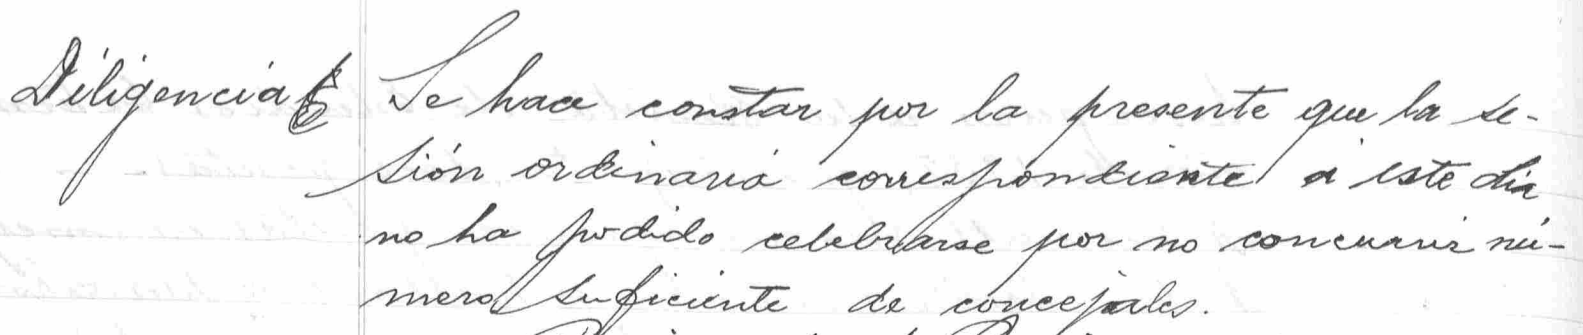 Diligencia Se hace constar por la presente que la se-
sión ordinaria correspondiente á este dia
no ha podido celebrarse por no concurrir nú-
mero suficiente de concejales.